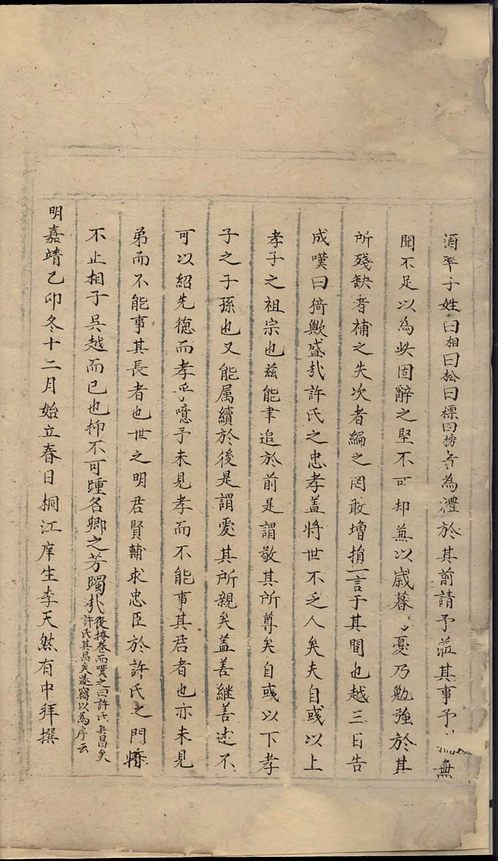 酒率子姓曰相曰松曰標曰榜者為澧於其前請予蒞其事予無
聞不足以為此固辭之堅不可却兼以歲暮憂乃勉強於其
所殘缺者補之失次者編之罔敢增損一言于其間也越三日告
成嘆曰猗歟盛哉許氏之忠孝蓋將世不乏人矣夫自彧以上
孝子之祖宗也茲能聿追於前是謂敬其所尊矣自彧以下孝
子之子孫也又能属續於後是謂愛其所親矣蓋善繼善述不
可以紹先德而孝乎噫予未見孝而不能事其君者也亦未見
弟而不能事其長者也世之明君賢輔求忠臣於許氏之門將
不止相于吳越而已也抑不可踵名卿之芳躅哉復捲卷而嘆之曰許氏其昌矣
許氏其昌矣遂竊以為序云
明嘉靖乙卯冬十二月始立春日桐江庠生李天然有中拜撰